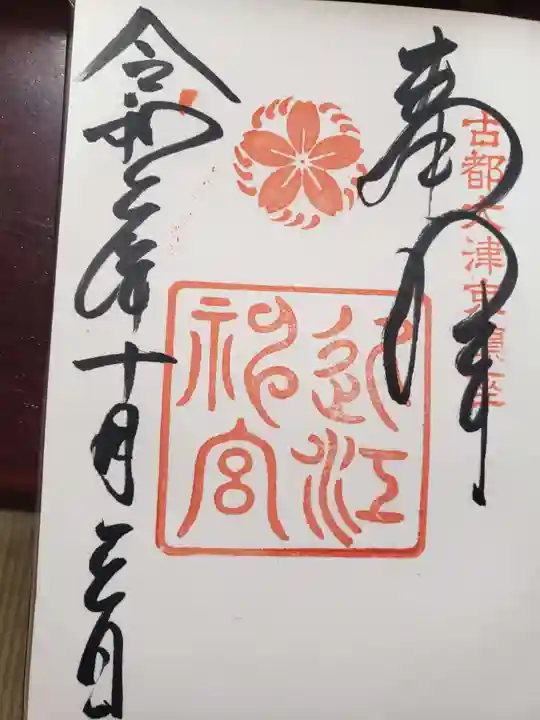 奉拝
古都大津京鎮座
近江
神宮
令和
年十月
日